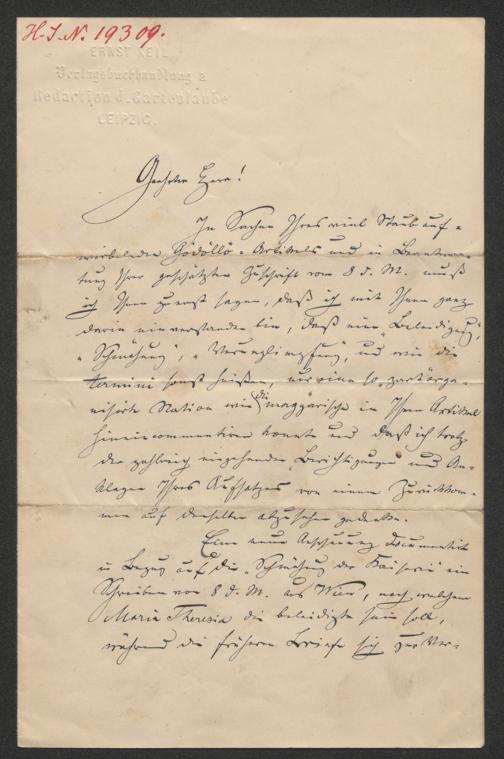 H.I.N. 19309.
ERNST KEIL
Verlagsbuchhandlung &
Redaction d. Gartenlaube
LEIPZIG.
Geehrter Herr!
In Sachen Ihres viel Staub auf-
wirbelnden Gödöllö-Artikels und in Beantwor-
tung Ihrer geschätzten Zuschrift vom 8 d. M. muß
ich Ihnen zuerst sagen, daß ich mit Ihnen ganz
darin einverstanden bin, daß eine „Beleidigung",
„Schmähung", „Verunglimpfung", und wie die
termini sonst heißen, nur eine so zart orga-
nisirte Nation wie die magyarische in Ihren Artikel
hineincommentiren konnte und daß ich trotz
der zahlreich eingehenden „Berichtigungen" und An-
klagen Ihres Aufsatzes von einem Zurückkom-
men auf denselben abzusehen gedenke.
Eine neue Anschauung documentirt
in Bezug auf die „Schmähung der Kaiserin" ein
Schreiben vom 8 d. M. aus Wien, nach welchem
Maria Theresia die beleidigte sein soll,
während die früheren Briefe sich zur Ver-